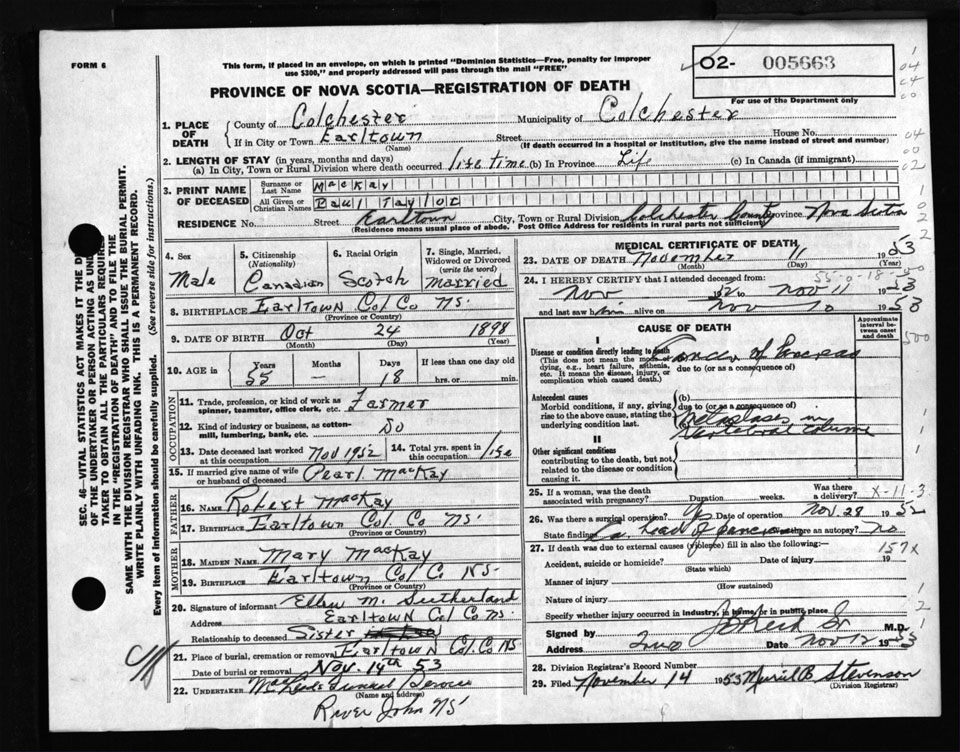 FORM 6
This form, if placed in an envelope, on which is printed "Dominion Statistics—Free, penalty for improper use $300," and properly addressed will pass through the mail "FREE"
O2- 005663
For use of the Department only
PROVINCE OF NOVA SCOTIA—REGISTRATION OF DEATH
SEC. 46—VITAL STATISTICS ACT MAKES IT THE
OF THE UNDERTAKER OR PERSON ACTING AS
TAKER TO OBTAIN ALL THE PARTICULARS
IN THE "REGISTRATION OF DEATH" AND TO FILE THE
SAME WITH THE DIVISION REGISTRAR WHO SHALL ISSUE THE BURIAL PERMIT.
WRITE PLAINLY WITH UNFADING INK. THIS IS A PERMANENT RECORD.
Every item of information should be carefully supplied. (See reverse side for instructions.)
1. PLACE OF DEATH County of Colchester Municipality of Colchester
If in City or Town Earltown Street House No.
(Name) (If death occurred in a hospital or institution, give the name instead of street and number)
2. LENGTH OF STAY (in years, months and days)
(a) In City, Town or Rural Division where death occurred life time (b) In Province Life (c) In Canada (if immigrant)
3. PRINT NAME OF DECEASED Surname or Last Name MacKay
All Given or Christian Names Paul Taylor
RESIDENCE No. Street Earltown City, Town or Rural Division Colchester County Province Nova Scotia
(Residence means usual place of abode. Post Office Address for residents in rural parts not sufficient)
4. Sex Male
5. Citizenship (Nationality) Canadian
6. Racial Origin Scotch
7. Single, Married, Widowed or Divorced (write the word) Married
8. BIRTHPLACE Earltown Col. Co NS.
(Province or Country)
9. DATE OF BIRTH Oct 24 1898
(Month) (Day) (Year)
10. AGE in Years 55 Months — Days 18 If less than one day old hrs. or min.
OCCUPATION
11. Trade, profession, or kind of work as spinner, teamster, office clerk, etc. Farmer
12. Kind of industry or business, as cotton-mill, lumbering, bank, etc. Do
13. Date deceased last worked at this occupation Nov 1952
14. Total yrs. spent in this occupation life
15. If married give name of wife or husband of deceased Pearl MacKay
FATHER
16. NAME Robert MacKay
17. BIRTHPLACE Earltown Col. Co NS.
(Province or Country)
MOTHER
18. MAIDEN NAME Mary MacKay
19. BIRTHPLACE Earltown Col C NS.
(Province or Country)
20. Signature of informant Ellen M. Sutherland
Address Earltown Col Co NS.
Relationship to deceased Sister
21. Place of burial, cremation or removal Earltown Col. Co NS
Date of burial or removal Nov. 14th 53
22. UNDERTAKER Funeral Service
(Name and address)
River John NS
MEDICAL CERTIFICATE OF DEATH
23. DATE OF DEATH November 11 1953
(Month) (Day) (Year)
55-0-18
24. I HEREBY CERTIFY that I attended deceased from:
Nov 52 to Nov 11 1953
and last saw him alive on Nov 10 1953
CAUSE OF DEATH
Approximate interval between onset and death
I
Disease or condition directly leading to death
(This does not mean the mode of dying, e.g., heart failure, asthenia, etc. It means the disease, injury, or complication which caused death.)
Cancer of Pancreas
due to (or as a consequence of)
Antecedent causes
Morbid conditions, if any, giving rise to the above cause, stating the underlying condition last.
(b)
due to (or as a consequence of)
(c) Metastases in vertebral column
II
Other significant conditions
contributing to the death, but not related to the disease or condition causing it.
25. If a woman, was the death associated with pregnancy? Duration weeks. Was there a delivery?
X-11-3
26. Was there a surgical operation? Yes Date of operation Nov. 28 1952
State findings Ca. head of pancreas Was there an autopsy? No
27. If death was due to external causes (violence) fill in also the following:— 157x
Accident, suicide or homicide? Date of injury 19
(State which)
Manner of injury
(How sustained)
Nature of injury
Specify whether injury occurred in industry, in home, or in public place
Signed by M.D.
Address Truro Date Nov 12 1953
28. Division Registrar's Record Number
29. Filed November 14 1953 Muriel B Stevenson
(Division Registrar)